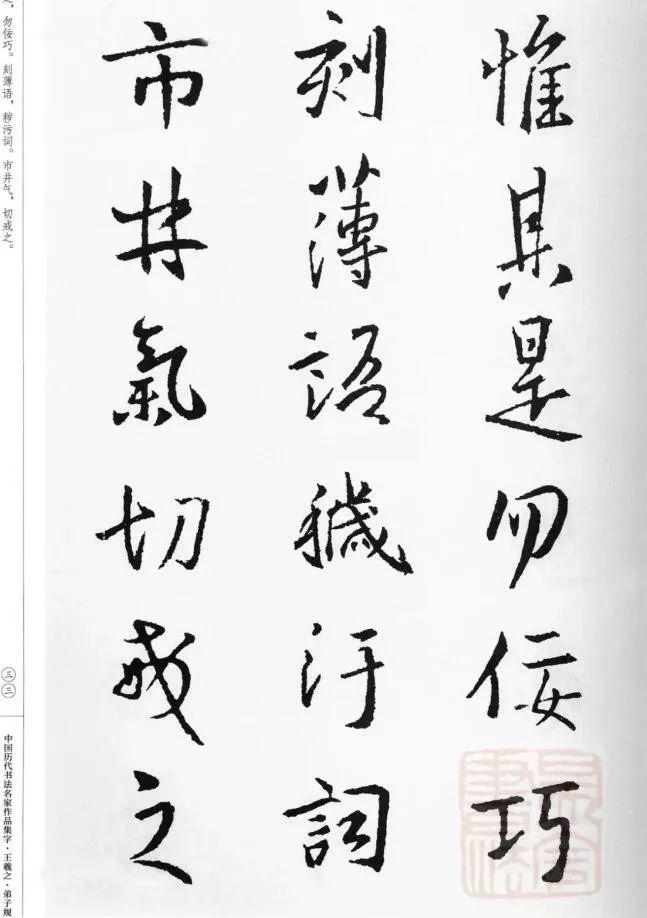 惟其是勿佞巧
刻薄語穢汙詞
市井氣切戒之
，勿佞巧。刻薄语，秽污词。市井气，切戒之。
三三
中国历代书法名家作品集字·王羲之·弟子规